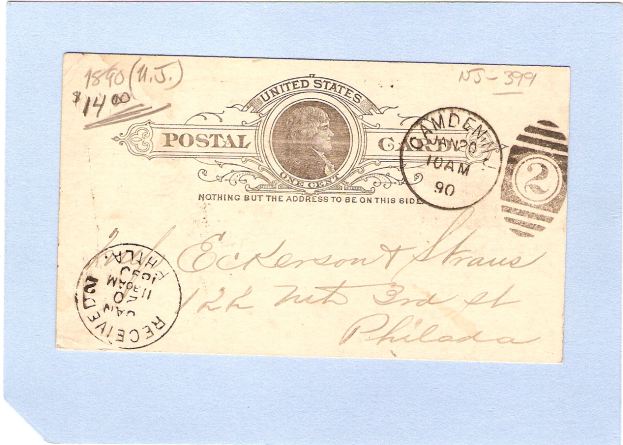 1890 (N.J.)
$14.00
NJ-399
UNITED STATES
POSTAL CARD
ONE CENT
NOTHING BUT THE ADDRESS TO BE ON THIS SIDE.
CAMDEN N.J.
JAN 20
10 AM
90
2
RECEIVED 2
JAN
20
11 30 AM
1890
PHILA.
Eckerson & Straus
122 Nth 3rd St
Philada